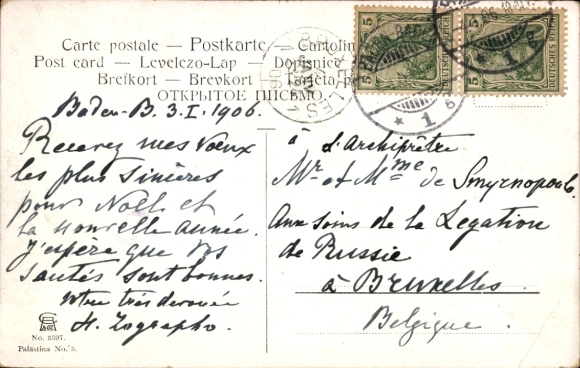 Carte postale — Postkarte — Cartolin
Post card — Levelezo-Lap — Dopisnice
Brefkort — Brevkort — Tarjeta-p
ОТКРЫТОЕ ПИСЬМО
BRUXELLES
5 DEUTSCHES REICH 5
5 DEUTSCHES REICH 5
* 1 g
* 1 g
Baden-B. 3. I. 1906.
Recevez mes vœux
les plus sincères
pour Noël et
la nouvelle année.
J'espère que vos
santés sont bonnes.
Votre très dévouée
H. Zographo.
à l'Archiprêtre
Mr. et Mme de Smyrnopoulo.
Aux soins de la Legation
de Russie
à Bruxelles.
Belgique.
No. 3597.
Palästina No. 5.